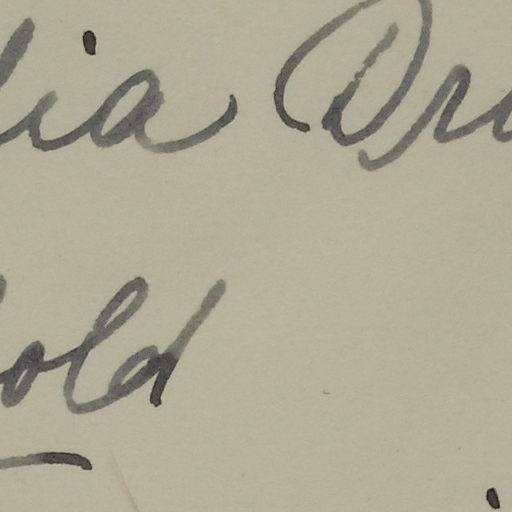 lia Dr
old